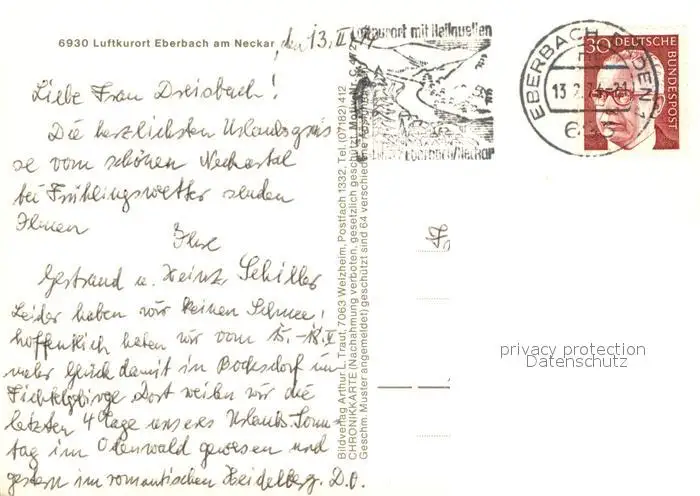 6930 Luftkurort Eberbach am Neckar, den 13. II. 74
Liebe Frau Dreisbach!
Die herzlichsten Urlaubsgrüs
se vom schönen Neckartal
bei Frühlingswetter senden
Ihnen
Ihre
Gertraud u. Heinz Schiller
Leider haben wir keinen Schnee,
hoffentlich haben wir vom 15.-18. II
mehr Glück damit in Bocksdorf im
Fichtelgebirge. Dort weilen wir die
letzten 4 Tage unseres Urlaubs. Sonn-
tag im Odenwald gewesen und
gestern im romantischen Heidelberg. D.O.
Bildverlag Arthur L. Traut, 7063 Welzheim, Postfach 1332, Tel. (07182) 412
CHRONIKKARTE (Nachahmung verboten, gesetzlich geschützt
Geschm. Muster angemeldet) geschützt sind 64 verschiedene
Luftkurort mit Heilquellen
Eberbach/Neckar
EBERBACH, BADEN 1
13.2.74-21
30 DEUTSCHE
BUNDESPOST
Fr
privacy protection
Datenschutz